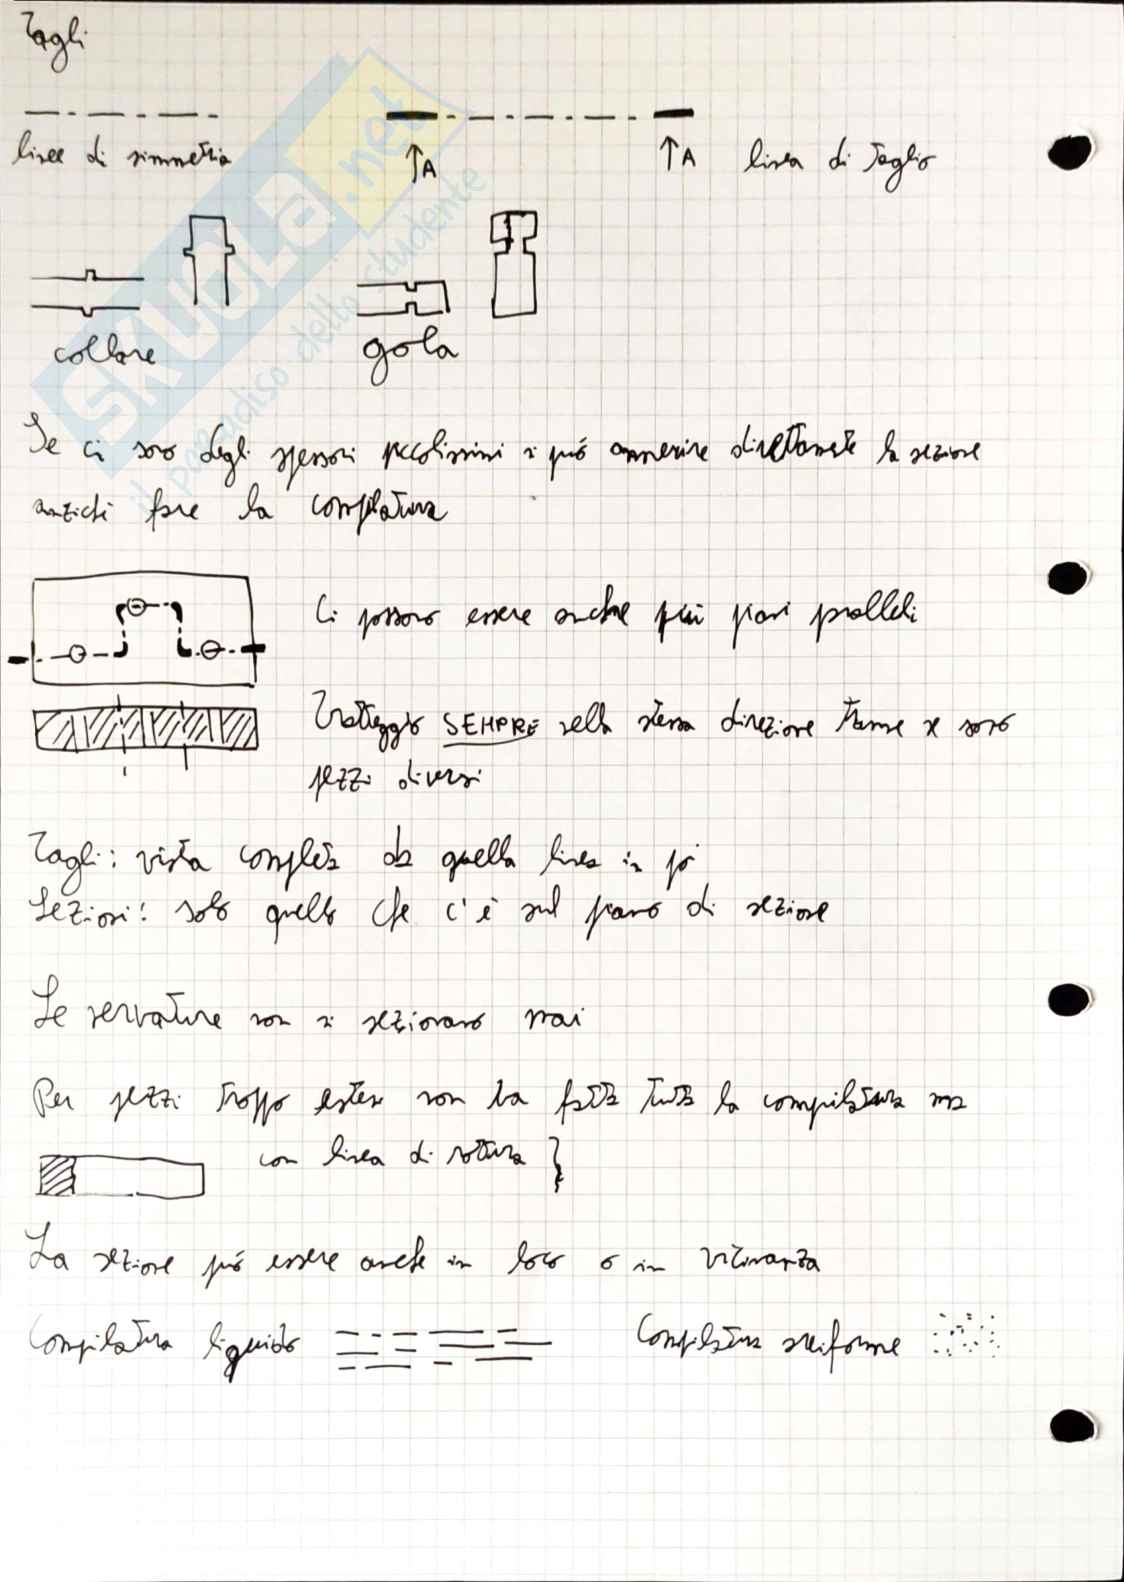 Tagli
linee di simmetria
↑A
↑A
linea di taglio
collare
gola
Se ci sono degli spessori piccolissimi si può annerire direttamente la sezione
anziché fare la compilatura
Ci possono essere anche più piani paralleli
Tratteggio SEMPRE nella stessa direzione tranne se sono
pezzi diversi
Tagli: vista completa da quella linea in poi
Sezioni: solo quello che c'è sul piano di sezione
Le nervature non si sezionano mai
Per pezzi troppo estesi non va fatta tutta la compilatura ma
con linea di rottura
La sezione può essere anche in loco o in vicinanza
Compilatura liquido
Compilatura aeriforme
SKUOLA.net
il paradiso dello studente